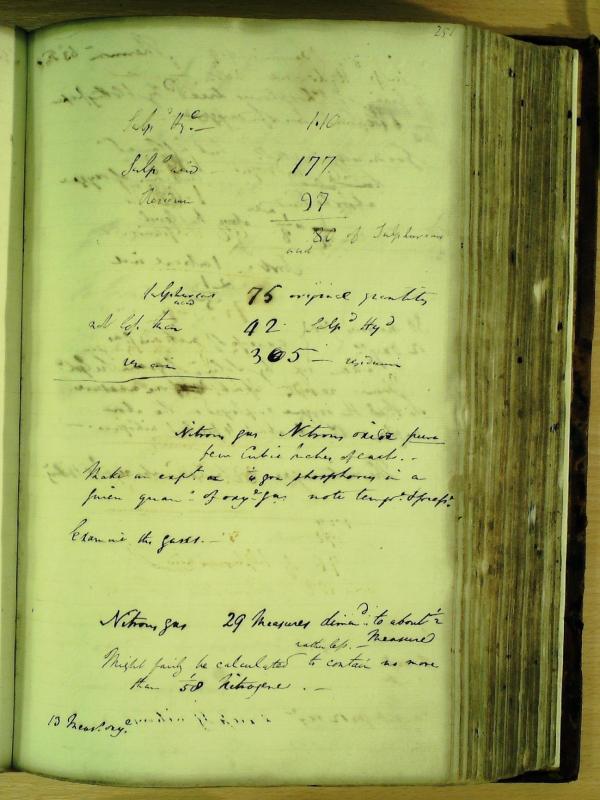 251
Sulp.d Hy.e — 110
Sulp.s acid 177
Residuum 97
80 of Sulphureous
acid
Sulphureous acid 75 original quantity
not less than 42. Sulp.d Hy.d
305 — residuum
Nitrous gas Nitrous oxide pure
few Cubic Inches of each. —
Make an exp.t on gra phosphorus in a
given quan.y of oxy.e gas note temp.r & press.r
Examine the gases. —
Nitrous gas 29 Measures dimin.d to about 1/2
rather less. — Measured
Might fairly be calculated to contain no more
than 1/58 Nitrogene. —
13 Meas. oxy.e